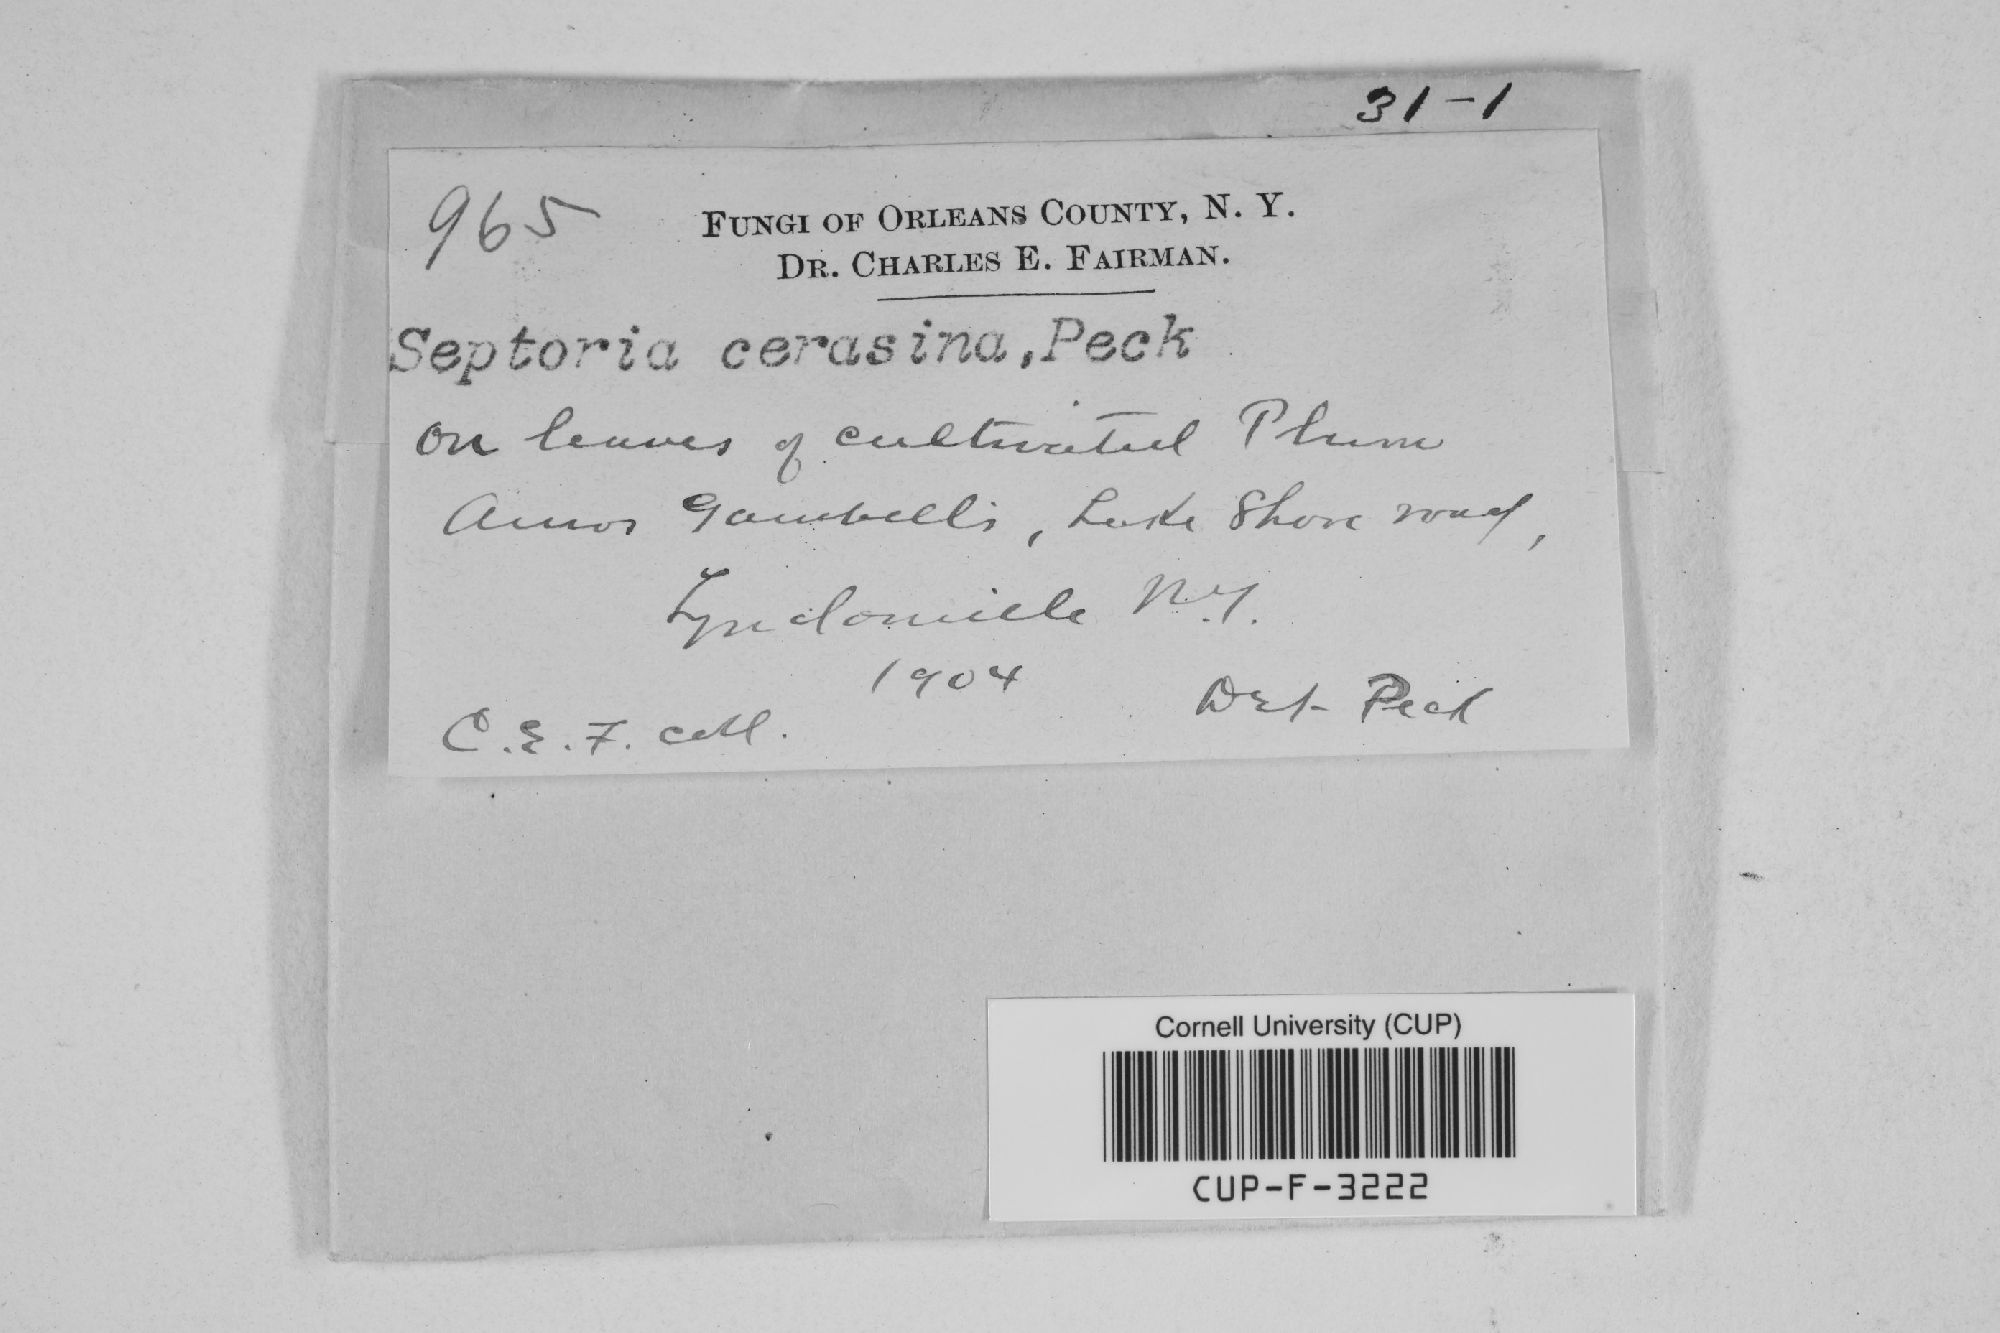 31-1
965
FUNGI OF ORLEANS COUNTY, N. Y.
DR. CHARLES E. FAIRMAN.
Septoria cerasina, Peck
on leaves of cultivated Plum
Amos Gambell's, Lake Shore road,
Lyndonville N.Y.
1904
Det Peck
C.E.F. coll.
Cornell University (CUP)
CUP-F-3222